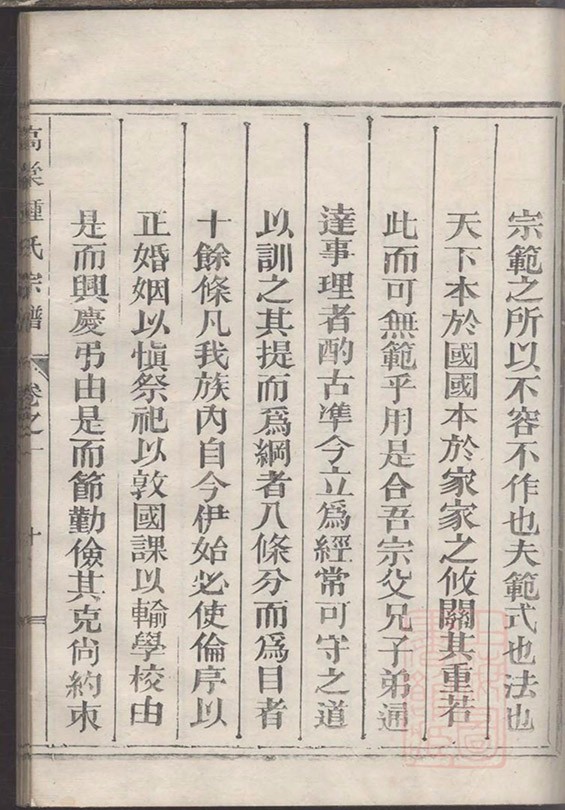 宗範之所以不容不作也夫範式也法也
天下本於國國本於家家之攸關其重若
此而可無範乎用是合吾宗父兄子弟通
達事理者酌古準今立爲經常可守之道
以訓之其提而爲綱者八條分而爲目者
十餘條凡我族內自今伊始必使倫序以
正婚姻以愼祭祀以敦國課以輸學校由
是而興慶弔由是而節勤儉其克尙約束
高 鍾氏宗譜 卷之一 十